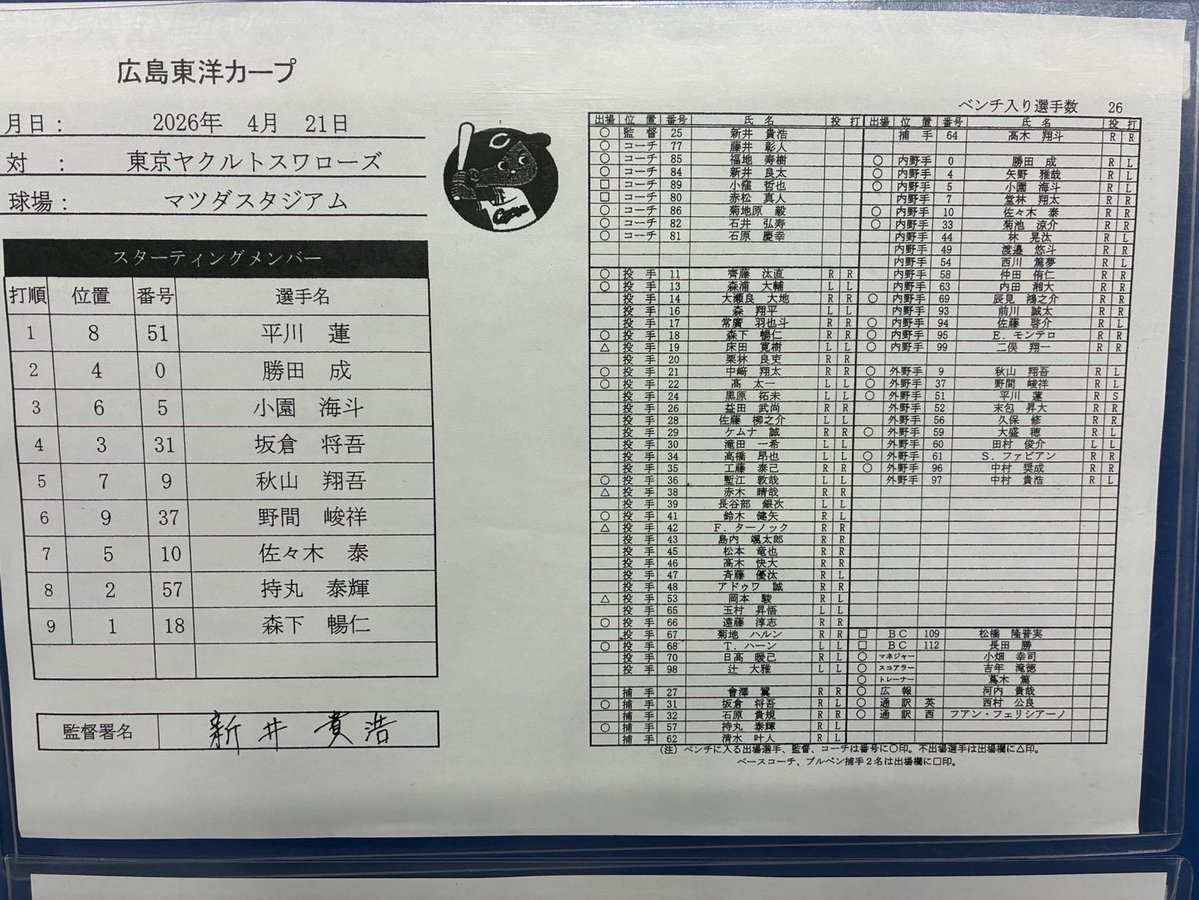 広島東洋カープ
月日： 2026年 4月 21日
対 ： 東京ヤクルトスワローズ
球場： マツダスタジアム
スターティングメンバー
打順 位置 番号 選手名
1 8 51 平川 蓮
2 4 0 勝田 成
3 6 5 小園 海斗
4 3 31 坂倉 将吾
5 7 9 秋山 翔吾
6 9 37 野間 峻祥
7 5 10 佐々木 泰
8 2 57 持丸 泰輝
9 1 18 森下 暢仁
監督署名 新井 貴浩
ベンチ入り選手数 26
出場 位置 番号 氏名 投 打
○ 監督 25 新井 貴浩
○ コーチ 77 藤井 彰人
○ コーチ 85 福地 寿樹
○ コーチ 84 新井 良太
□ コーチ 89 小窪 哲也
□ コーチ 80 赤松 真人
○ コーチ 86 菊地原 毅
○ コーチ 82 石井 弘寿
○ コーチ 81 石原 慶幸
○ 投手 11 齊藤 汰直 R R
○ 投手 13 森浦 大輔 L L
投手 14 大瀬良 大地 R R
投手 16 森 翔平 L L
投手 17 常廣 羽也斗 R R
○ 投手 18 森下 暢仁 R R
△ 投手 19 床田 寛樹 L L
投手 20 栗林 良吏 R R
○ 投手 21 中﨑 翔太 R R
○ 投手 22 高 太一 L L
投手 24 黒原 拓未 L L
投手 26 益田 武尚 R R
投手 28 佐藤 柳之介 L L
投手 29 ケムナ 誠 R R
投手 30 滝田 一希 L L
投手 34 高橋 昂也 L L
投手 35 工藤 泰己 R R
○ 投手 36 塹江 敦哉 L L
△ 投手 38 赤木 晴哉 R R
投手 39 長谷部 銀次 L L
○ 投手 41 鈴木 健矢 R L
△ 投手 42 F．ターノック R R
投手 43 島内 颯太郎 R R
投手 45 松本 竜也 R R
投手 46 高木 快大 R R
投手 47 斉藤 優汰 R L
投手 48 アドゥワ 誠 R R
△ 投手 53 岡本 駿 R L
投手 65 玉村 昇悟 L L
○ 投手 66 遠藤 淳志 R R
投手 67 菊地 ハルン R R
○ 投手 68 T．ハーン L L
投手 70 日髙 暖己 R L
投手 98 辻 大雅 L L
捕手 27 會澤 翼 R R
○ 捕手 31 坂倉 将吾 R L
捕手 32 石原 貴規 R R
○ 捕手 57 持丸 泰輝 R L
捕手 62 清水 叶人 R L
出場 位置 番号 氏名 投 打
捕手 64 髙木 翔斗 R R
○ 内野手 0 勝田 成 R L
○ 内野手 4 矢野 雅哉 R L
○ 内野手 5 小園 海斗 R L
内野手 7 堂林 翔太 R R
○ 内野手 10 佐々木 泰 R R
○ 内野手 33 菊池 涼介 R R
内野手 44 林 晃汰 R L
内野手 49 渡邉 悠斗 R R
内野手 54 西川 篤夢 R L
内野手 58 仲田 侑仁 R R
内野手 63 内田 湘大 R R
○ 内野手 69 辰見 鴻之介 R R
内野手 93 前川 誠太 R R
○ 内野手 94 佐藤 啓介 R L
○ 内野手 95 E．モンテロ R R
○ 内野手 99 二俣 翔一 R R
○ 外野手 9 秋山 翔吾 R L
○ 外野手 37 野間 峻祥 R L
○ 外野手 51 平川 蓮 R S
外野手 52 末包 昇大 R R
外野手 56 久保 修 R R
○ 外野手 59 大盛 穂 R L
外野手 60 田村 俊介 L L
○ 外野手 61 S．ファビアン R R
○ 外野手 96 中村 奨成 R R
外野手 97 中村 貴浩 R L
□ BC 109 松橋 隆普実
□ BC 112 長田 勝
○ マネジャー 小畑 幸司
○ スコアラー 吉年 滝徳
○ トレーナー 蔦木 篤
○ 広報 河内 貴哉
○ 通訳 英 西村 公良
○ 通訳 西 フアン・フェリシアーノ
（注）ベンチに入る出場選手、監督、コーチは番号に○印。不出場選手は出場欄に△印。
ベースコーチ、ブルペン捕手２名は出場欄に□印。